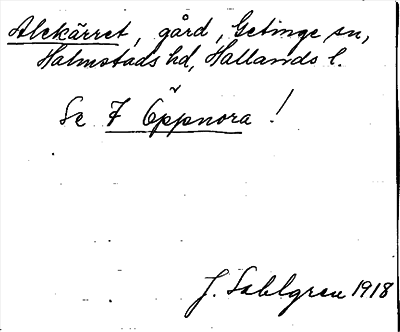 Alekärret, gård, Getinge sn,
Halmstads hd, Hallands l.
Se 7 Öppnora !
J. Sahlgren 1918